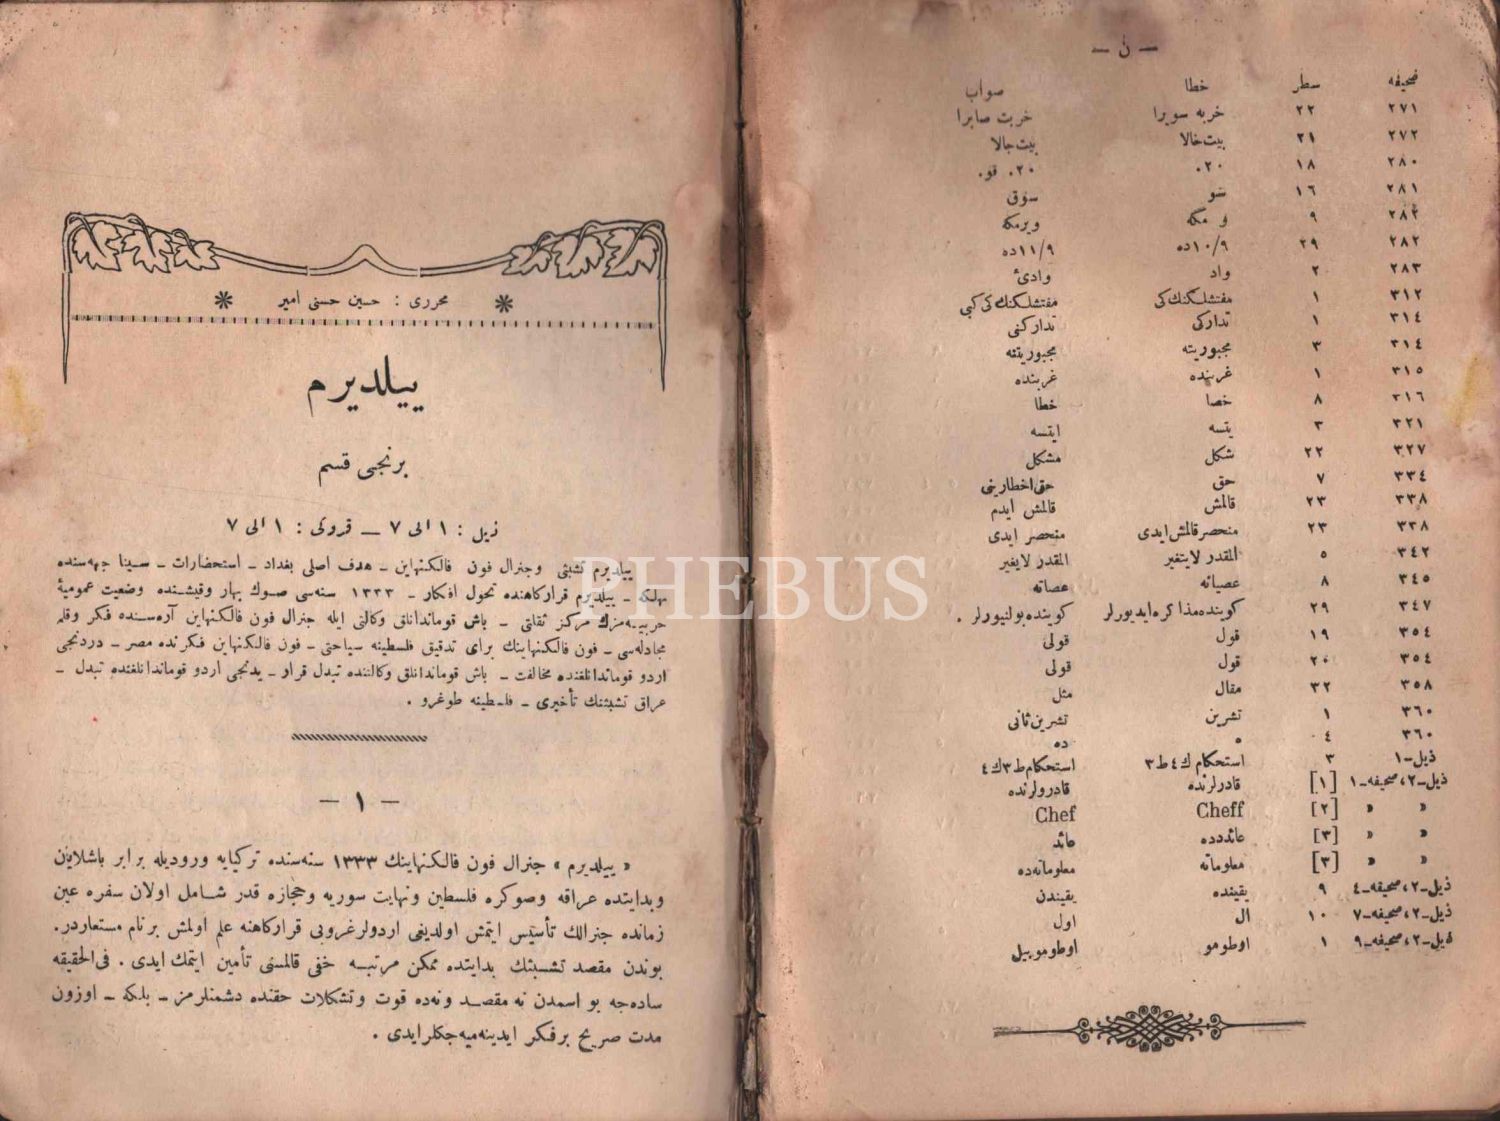 — ن —
صحیفه سطر خطا صواب
٢٧١ ٢٢ خربه سویرا خربت صابرا
٢٧٢ ٢١ بیت‌خالا بیت‌جالا
٢٨٠ ١٨ ٢٠. ٢٠. قو.
٢٨١ ١٦ سو سوق
٢٨٢ ٩ و مکه ویرمکه
٢٨٢ ٢٩ ١٠/٩ده ١١/٩ده
٢٨٣ ٢ واد وادئ
٣١٢ ١ مفتشلکنك‌کی مفتشلکنك‌کی‌کبی
٣١٤ ١ تدارکی تدارکنی
٣١٤ ٣ مجبوریته مجبوریتنه
٣١٥ ١ غرسنده غربنده
٣١٦ ٨ خصا خطا
٣٢١ ٣ یتسه ایتسه
٣٢٧ ٢٢ شکل مشکل
٣٣٤ ٧ حق حق‌اخطارینی
٣٣٨ ٢٣ قالمش قالمش ایدم
٣٣٨ ٢٣ منحصرقالمش‌ایدی منحصر ایدی
٣٤٢ ٥ المقدر لایتغیر المقدر لایغیر
٣٤٥ ٨ عصیاته عصاته
٣٤٧ ٢٩ کوینده‌مذاکره‌ایدیورلر کوینده‌بولنیورلر .
٣٥٤ ١٩ قول قولی
٣٥٤ ٢٠ قول قولی
٣٥٨ ٣٢ مقال مثل
٣٦٠ ١ تشرین تشرین‌ثانی
٣٦٠ ٤ ه ده
ذیل-١ ٣ استحکام ك٤ط٣ استحکام‌ط٣ك٤
ذیل-٢، صحیفه-١ [١] قادرلرنده قادرولرنده
» » » [٢] Cheff Chef
» » » [٣] عائددده عائد
» » » [٣] معلوماته معلوماته‌ده
ذیل-٢، صحیفه-٤ ٩ یقینده یقیندن
ذیل-٢، صحیفه-٧ ١٠ ال اول
ذیل-٢، صحیفه-٩ ١ اوطومو اوطوموبیل
محرری : حسین حسنی امیر
ییلدیرم
برنجی قسم
ذیل : ١ الی ٧ — قروکی : ١ الی ٧
ییلدیرم تشبثی وجنرال فون فالکنهاین - هدف اصلی بغداد - استحضارات - سینا جبهه‌سنده
مهلکه - ییلدیرم قرارکاهنده تحول افکار - ١٣٣٣ سنه‌سی صوك بهار وقیشنده وضعیت عمومیهٔ
حربیه‌مزك مرکز ثقلتی - باش قوماندانلق وکالتی ایله جنرال فون فالکنهاین آره‌سنده فکر وقلم
مجادله‌سی - فون فالکنهاینك برای تدقیق فلسطینه سیاحتی - فون فالکنهاین فکرنده مصر - دردنجی
اردو قوماندانلغنده مخالفت - باش قوماندانلق وکالتنده تبدل قرار - یدنجی اردو قوماندانلغنده تبدل -
عراق تشبثنك تأخیری - فلسطینه طوغرو .
— ١ —
« ییلدیرم » جنرال فون فالکنهاینك ١٣٣٣ سنه‌سنده ترکیایه ورودیله برابر باشلایان
وبدایتده عراقه وصوکره فلسطین ونهایت سوریه وحجازه قدر شامل اولان سفره عین
زمانده جنرالك تأسیس ایتمش اولدیغی اردولرغروبی قرارکاهنه علم اولمش برنام مستعاردر.
بوندن مقصد تشبثك بدایتده ممکن مرتبه خفی قالمسنی تأمین ایتمك ایدی . فی‌الحقیقه
ساده‌جه بو اسمدن نه مقصد ونه‌ده قوت وتشکلات حقنده دشمنلرمز - بلکه - اوزون
مدت صریح برفکر ایدینه‌میه‌جکلرایدی .
PHEBUS